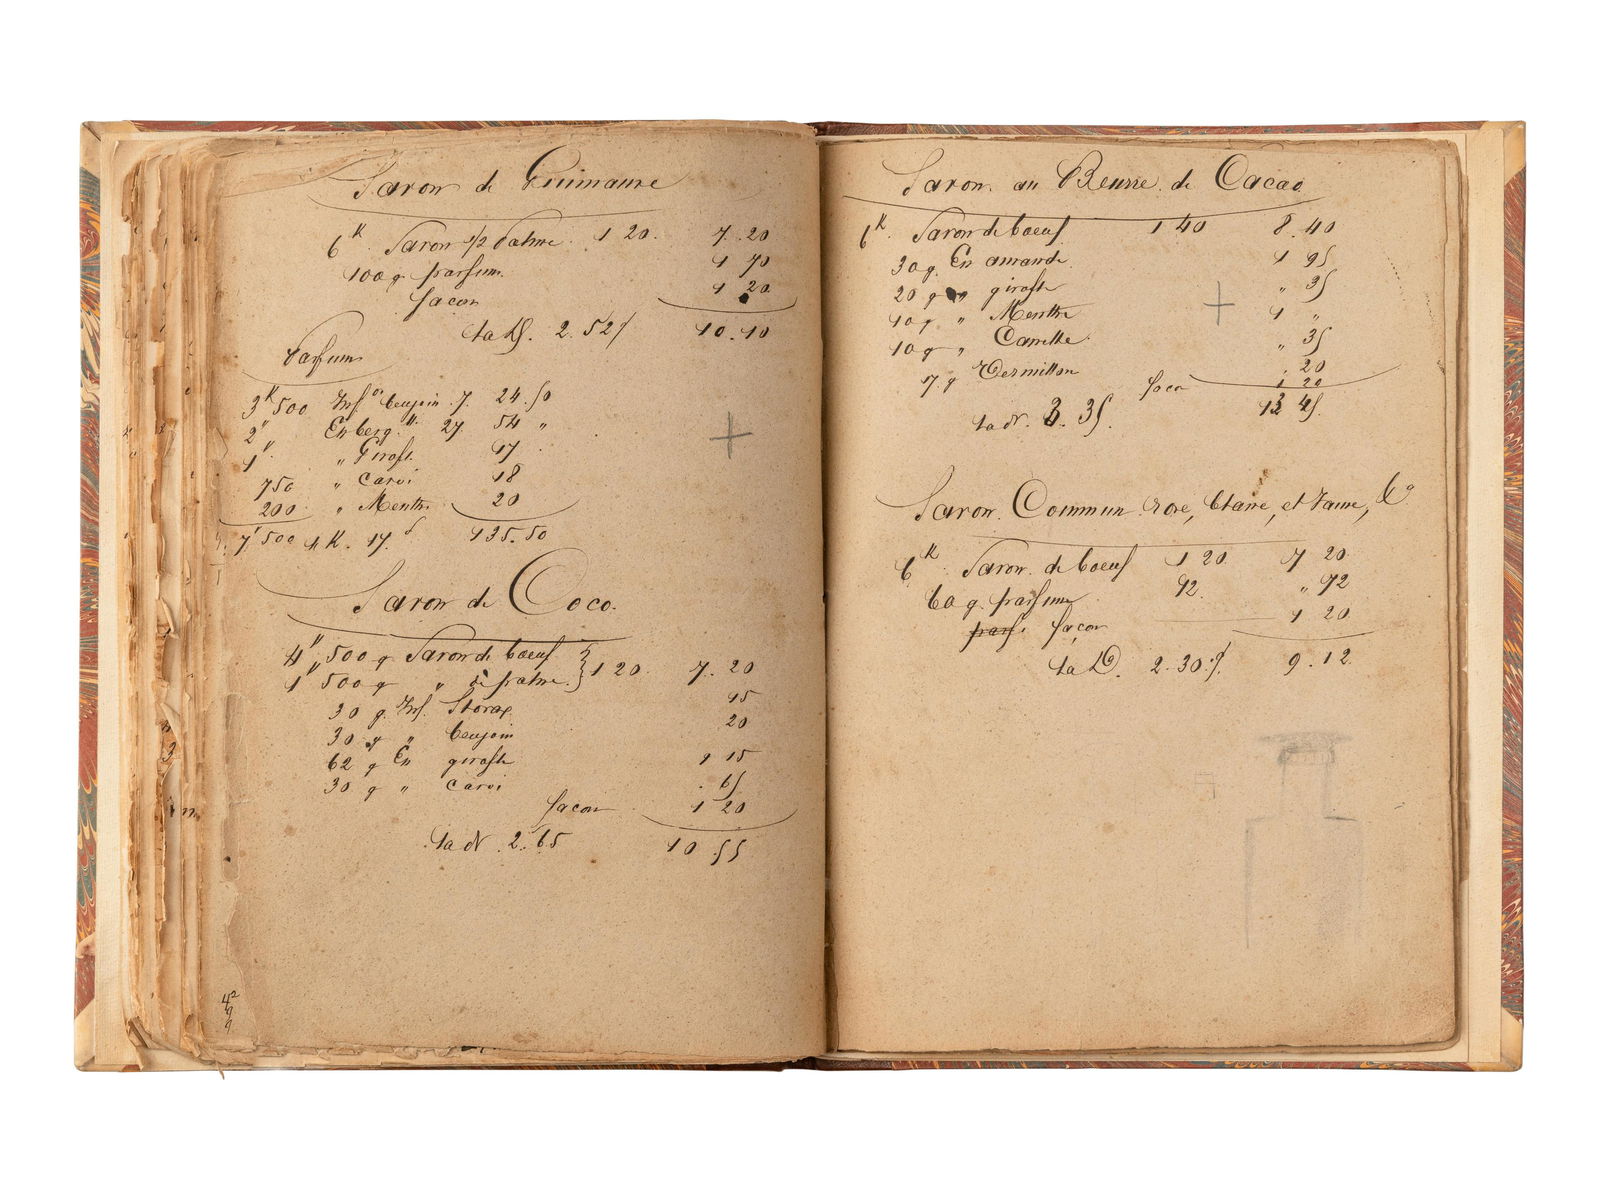 Savon de Guimauve
6K. Savon 1/2 Palme. 1 20. 7. 20
100 g parfum 1 70
façon 1 20
la D. 2. 52 10. 10
Parfum
3K 500 Inf. on benjoin. 7. 24. 50
2" Es berg. 27 54 "
1" " Girofl. 17
750 " Carvi 18
200 " Menthe 20
7K 500 K. 17. 135. 50
Savon de Coco.
4" 500 g Savon de boeuf } 1 20. 7. 20
1" 500 g " de palme.
30 g. Inf. Storax 15
30 g " benjoin 20
62 g Es girofle 1 15
30 g " carvi . 65
façon 1 20
la D. 2. 65 10 55
42
9
9
Savon au Beurre de Cacao
6K. Savon de boeuf 1 40 8. 40
30 g. Es amande 1 95
20 g " girofle " 35
10 g " Menthe 1 "
10 g " Canelle " 35
7. g Vermillon . 20
faco 1 20
la D. 3. 35. 13 45.
Savon Commun rose, blanc, et Jaune, &a
6K Savon de boeuf 1 20 7 20
60 g. parfum 92. " 92
parf. façon 1 20
la D. 2. 30. 9. 12